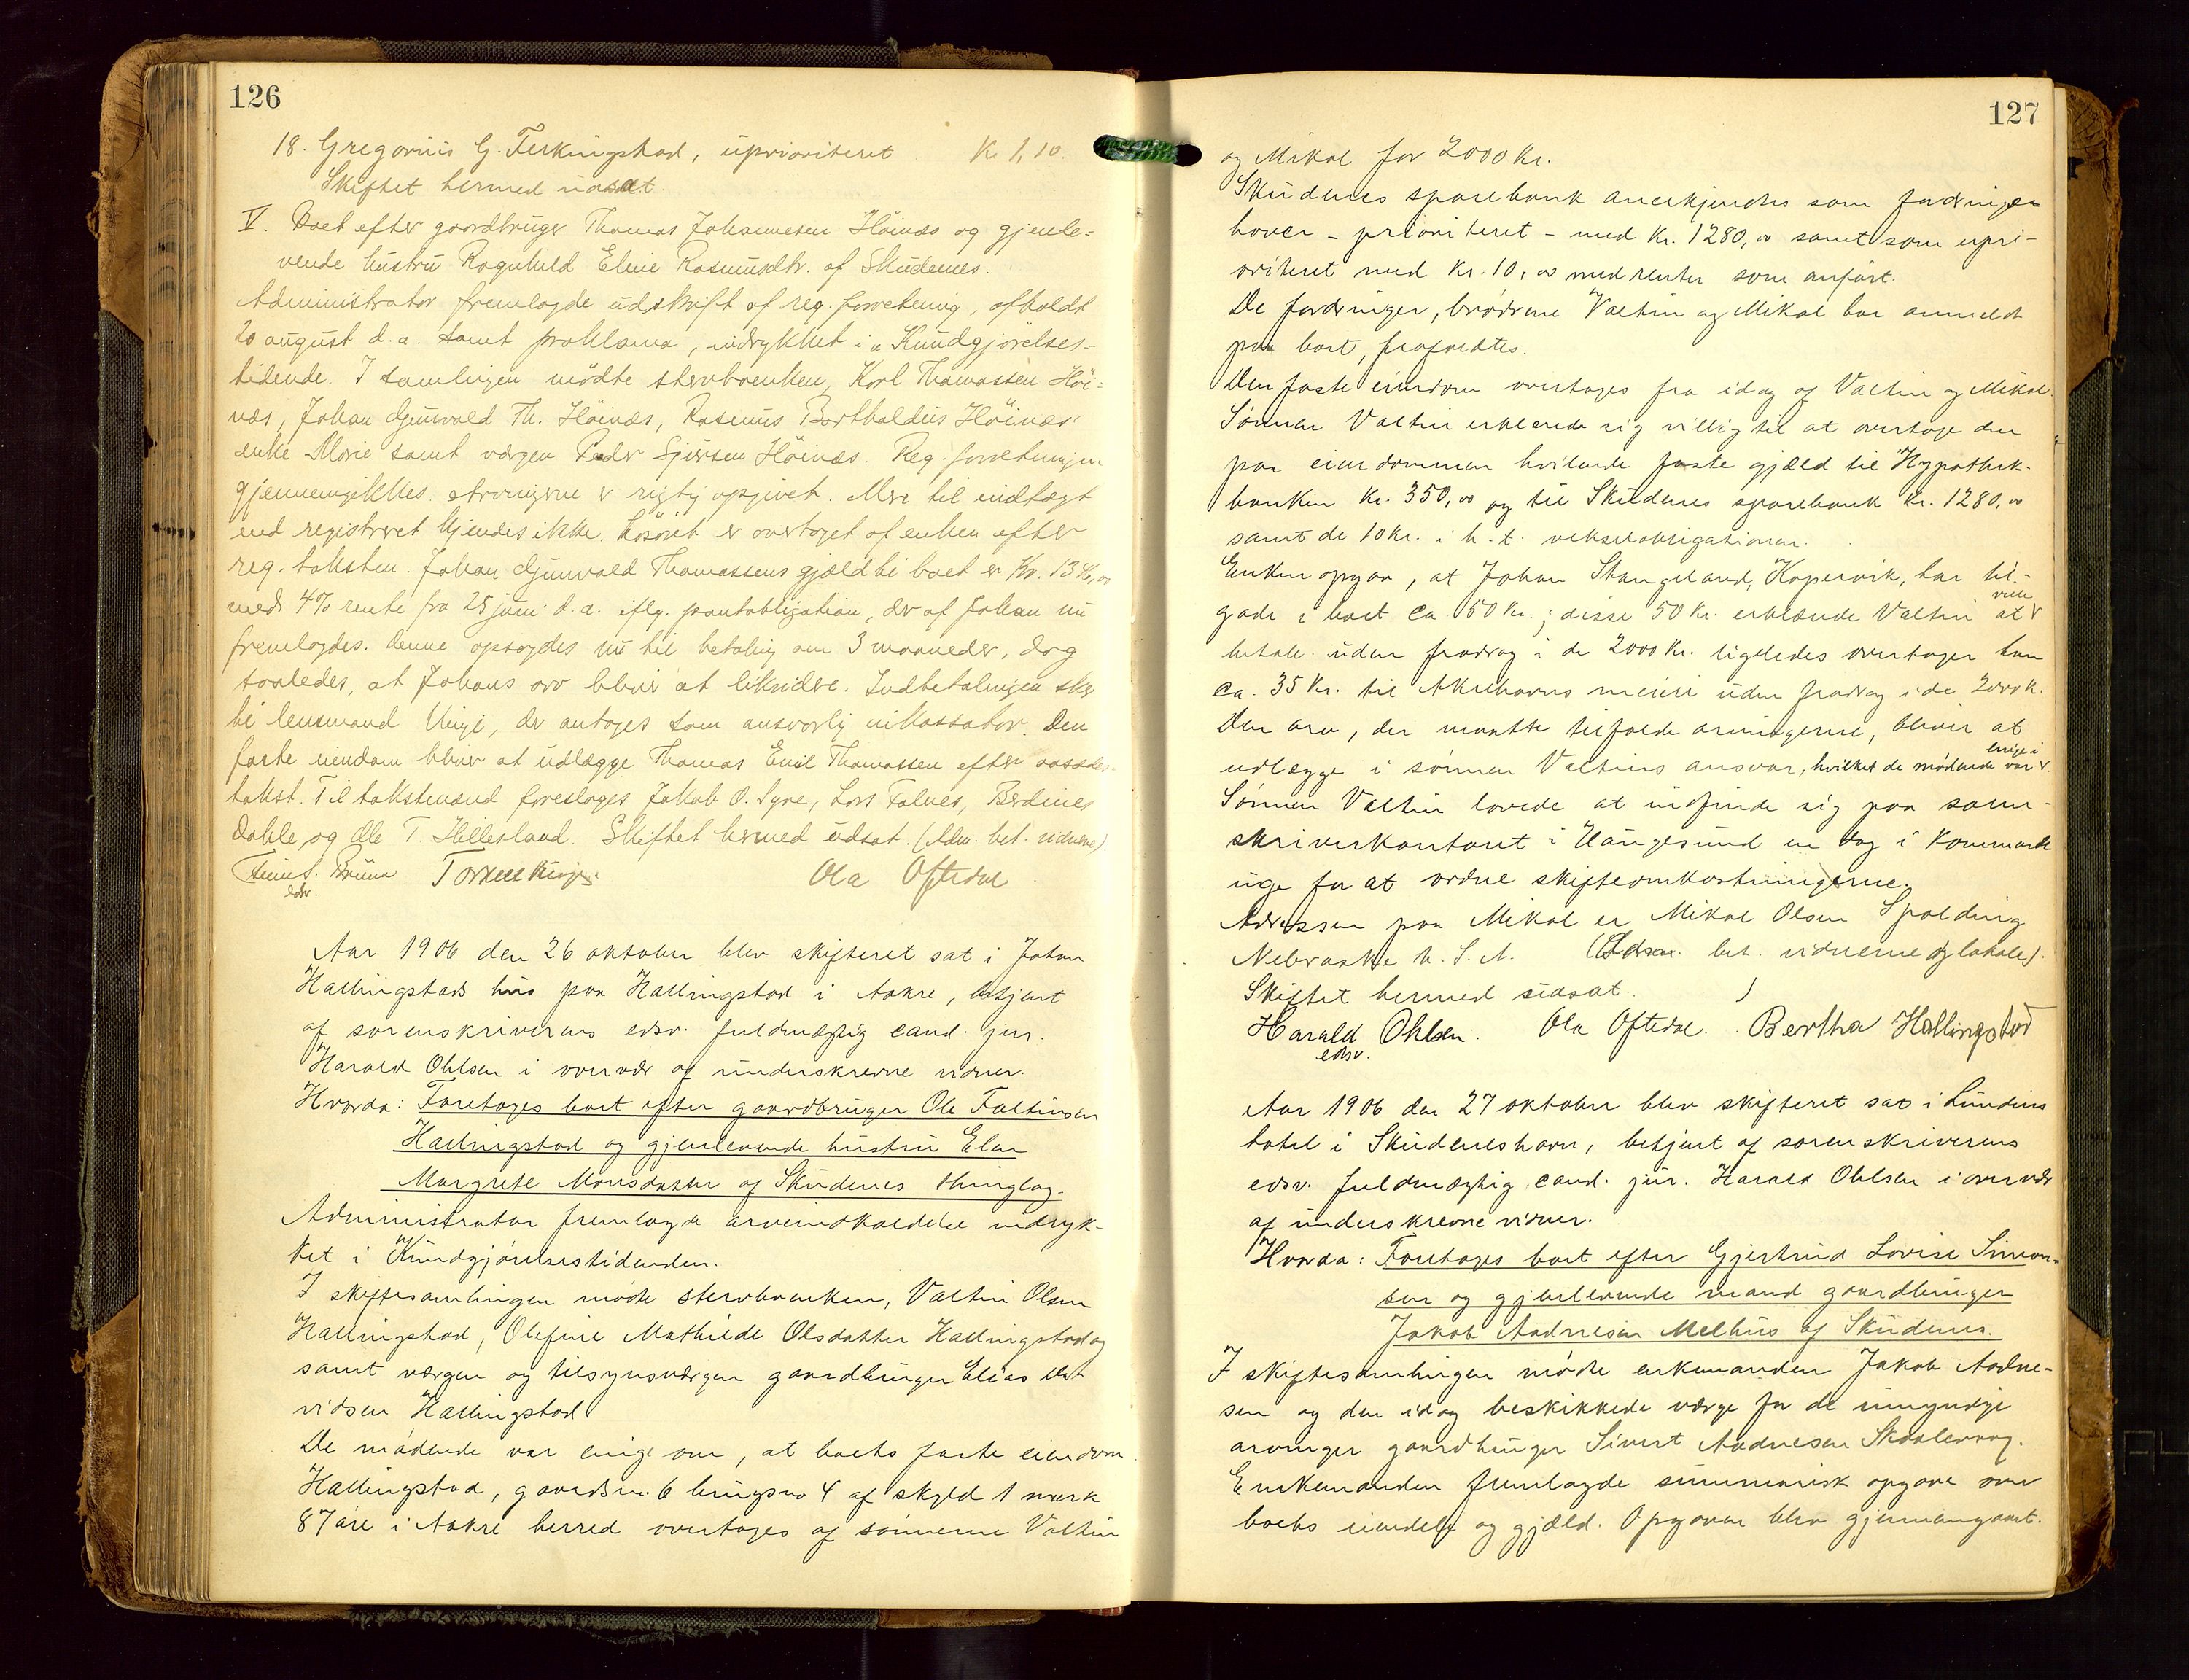 126
18. Gregorius G. Ferkingstad, uprioriteret Kr. 1,10.
Skiftet hermed udsat.
V. Boet efter gaardbruger Thomas Johannesen Höinæs og gjenle-
vende hustru Ragnhild Eline Rasmusdtr. af Skudenes.
Administrator fremlagde udskrift af reg. forretning, afholdt
20 august d.a. samt proklama, indrykket i Kundgjörelses-
tidende. I samlingen mödte stervboenken, Karl Thomassen Höi-
næs, Johan Gunvald Th. Höinæs, Rasmus Bertholdus Höinæs'
enke Marie samt værgen Peder Sjursen Höinæs. Reg. forretningen
gjennemgikkes. Arvingerne er rigtig opgivet. Mere til indtægt
end registreret kjendes ikke. Lösöret er overtaget af enken efter
reg. taksten. Johan Gunvald Thomassens gjæld til boet er Kr. 1346,00
med 4% rente fra 25 juni d.a. iflg. pantobligation, der af Johan nu
fremlagdes. Denne opsagdes nu til betaling om 3 maaneder, dog
saaledes, at Johans arv bliver at likvidere. Indbetalingen sker
til lensmand Vinje, der antages som ansvarlig inkassator. Den
faste eiendom bliver at udlægge Thomas Emil Thomassen efter aasædes-
takst. Til takstmænd foreslages Jakob O. Syre, Lars Falnes, Berdines
Dahle og Ole T. Hillesland. Skiftet hermed udsat. (Adm. bet. vidnerne)
Bruun Ola Oftedal
edsv.
Aar 1906 den 26 oktober blev skifteret sat i Johan
Hallingstads hus paa Hallingstad i Aakre, betjent
af sorenskriverens edsv. fuldmægtig cand. jur.
Harald Ohlsen i overvær af underskrevne vidner.
Hvorda: Foretages boet efter gaardbruger Ole Faltinsen
Hallingstad og gjenlevende hustru Elen
Margrete Monsdatter af Skudenes thinglag.
Administrator fremlagde arveindkaldelse indryk-
ket i Kundgjörelsestidenden.
I skiftesamlingen mödte stervboenken, Valtin Olsen
Hallingstad, Olefine Mathilde Olsdatter Hallingstad og
samt værgen og tilsynsværgen gaardbruger Elias
vidsen Hallingstad
De mödende var enige om, at boets faste eiendom
Hallingstad, gaardsno. 6 brugsno 4 af skyld 1 mark
87 øre i Aakre herred overtages af sønnerne Valtin
127
og Mikal for 2000 Kr.
Skudenes sparebank anerkjendtes som fordrings
haver - prioriteret - med Kr. 1280,00 samt som upri-
oriteret med Kr. 10,00 med renter som anfört.
De fordringer, brødrene Valtin og Mikal har anmeldt
paa boet, frafaldtes.
Den faste eiendom overtages fra idag af Valtin og Mikal.
Sönnen Valtin erklærede sig villig til at overtage den
paa eiendommen hvilende faste gjæld til Hypothek-
banken Kr. 350,00 og til Skudenes sparebank Kr. 1280,00
samt de 10 Kr. i h. t. vekselobligationen.
Enken opgav, at Johan Stangeland, Kopervik, har til-
gode i boet ca. 50 Kr.; disse 50 Kr. erklærede Valtin at ville
betale uden fradrag i de 2000 Kr. ligeledes overtager han
ca. 35 Kr. til Akrehavns meieri uden fradrag i de 2000 Kr.
Den arv, der maatte tilfalde arvingerne, bliver at
udlægge i sønnen Valtins ansvar, hvilket de mødende var enige i.
Sönnen Valtin lovede at indfinde sig paa soren-
skriverkontoret i Haugesund en dag i kommende
uge for at ordne skifteomkostningerne.
Adressen paa Mikal er Mikal Olsen Spalding
Nebraska U. S. A. (Adm. bet. vidnerne og lokale).
Skiftet hermed udsat.
Harald Ohlsen. Ola Oftedal. Bertha Hallingstad
edsv.
Aar 1906 den 27 oktober blev skifteret sat i Lundins
hotel i Skudeneshavn, betjent af sorenskriverens
edsv. fuldmægtig cand. jur. Harald Ohlsen i overvær
af underskrevne vidner.
Hvorda: Foretages boet efter Gjertrud Lovise Simon-
sen og gjenlevende mand gaardbruger
Jakob Aadnesen Melhus af Skudenes.
I skiftesamlingen mödte enkemanden Jakob Aadne-
sen og den idag beskikkede værge for de umyndige
arvinger gaardbruger Sivert Aadnesen
Enkemanden fremlagde summarisk opgave over
boets eiendele og gjæld. Opgaven blev gjennemgaaet.